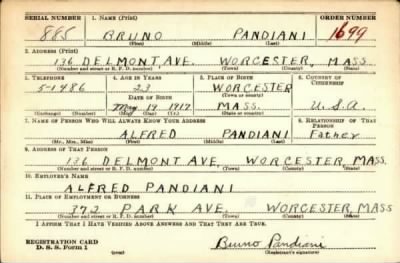 SERIAL NUMBER 1. NAME (Print) ORDER NUMBER
885 BRUNO PANDIANI 1699
(First) (Middle) (Last)
2. ADDRESS (Print)
136 DELMONT AVE. WORCESTER, MASS.
(Number and street or R. F. D. number) (Town) (County) (State)
3. TELEPHONE 4. AGE IN YEARS 5. PLACE OF BIRTH 6. COUNTRY OF CITIZENSHIP
5-1486 23 WORCESTER
DATE OF BIRTH (Town or county)
May 19 1917 MASS. U.S.A.
(Exchange) (Number) (Mo.) (Day) (Yr.) (State or country)
7. NAME OF PERSON WHO WILL ALWAYS KNOW YOUR ADDRESS 8. RELATIONSHIP OF THAT PERSON
ALFRED PANDIANI Father
(Mr., Mrs., Miss) (First) (Middle) (Last)
9. ADDRESS OF THAT PERSON
136 DELMONT AVE, WORCESTER, MASS.
(Number and street or R. F. D. number) (Town) (County) (State)
10. EMPLOYER'S NAME
ALFRED PANDIANI
11. PLACE OF EMPLOYMENT OR BUSINESS
372 PARK AVE. WORCESTER, MASS
(Number and street or R. F. D. number) (Town) (County) (State)
I AFFIRM THAT I HAVE VERIFIED ABOVE ANSWERS AND THAT THEY ARE TRUE.
REGISTRATION CARD
D. S. S. Form 1 (over) Bruno Pandiani
(Registrant's signature)